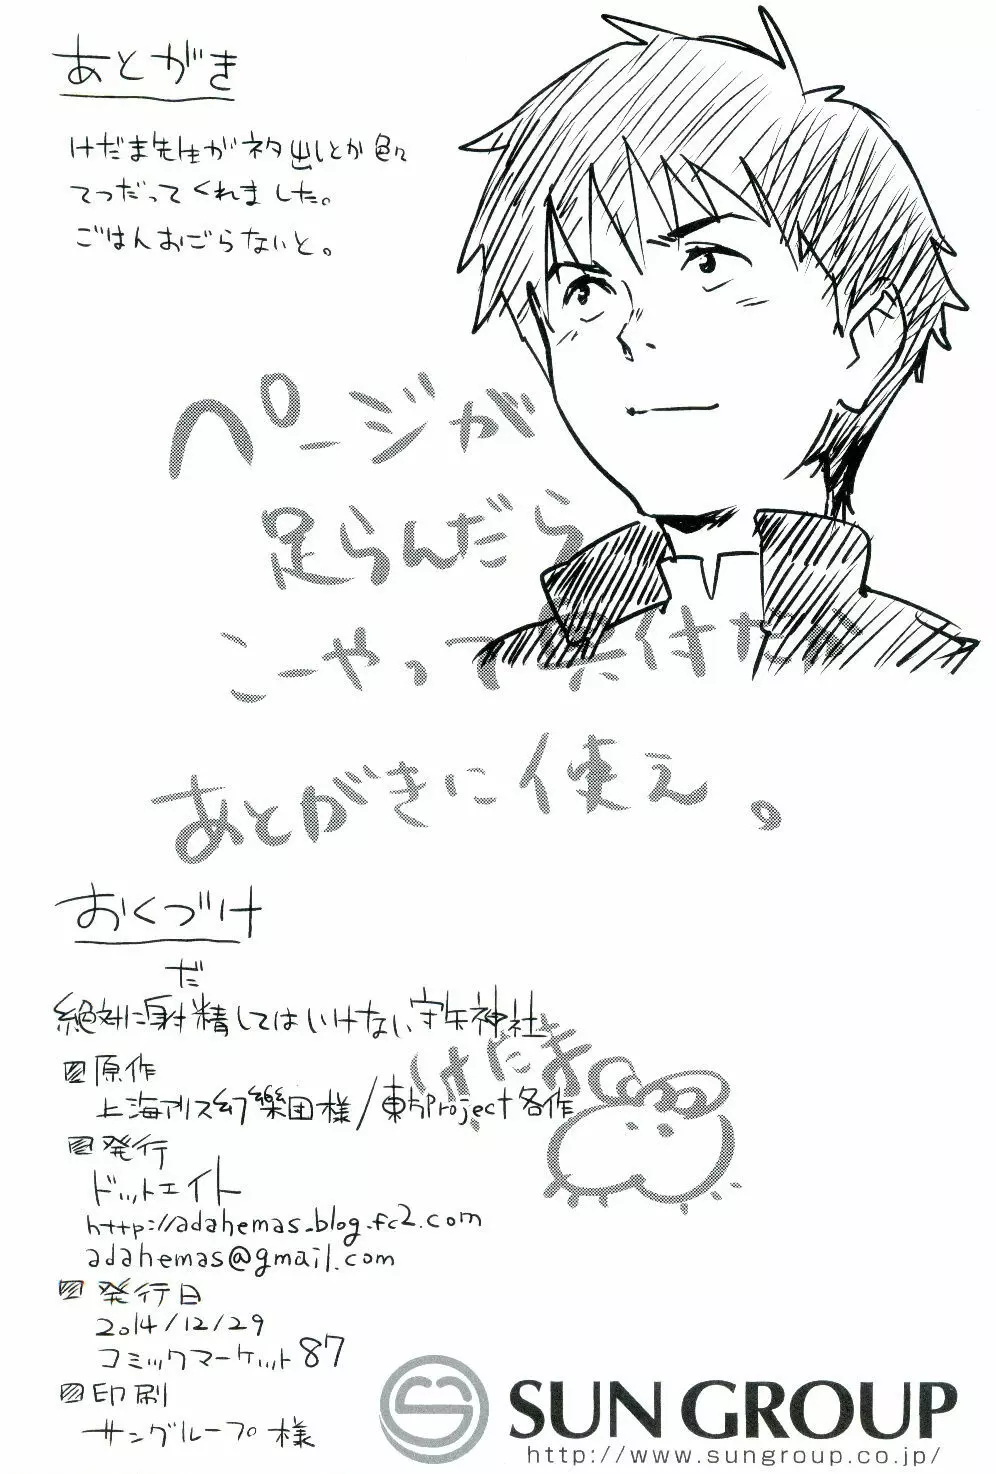 あとがき
けだま先生がネタ出しとか色々
てつだってくれました。
ごはんおごらないと。
ページが
足らんだら
こーやって 付だか
あとがきに使え。
おくづけ
だ
絶対に射精してはいけない守矢神社
けだま
原作
上海アリス幻樂団様/東方Project各作
発行
ドットエイト
http://adahemas.blog.fc2.com
adahemas@gmail.com
発行日
2014/12/29
コミックマーケット87
印刷
サングループ様
SUN GROUP
http://www.sungroup.co.jp/